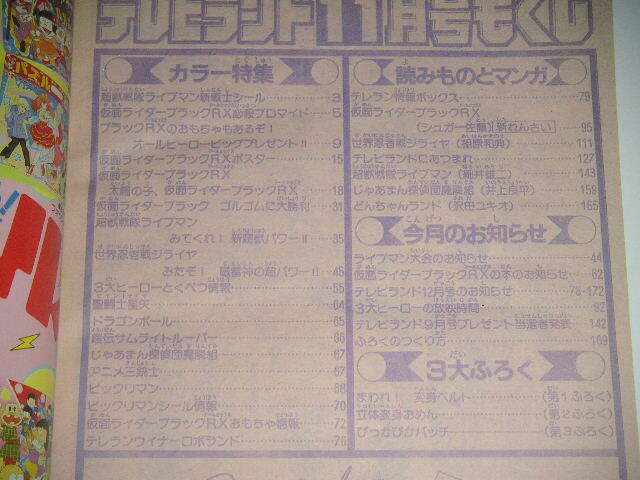 テレビランド11月号もくじ
カラー特集
超獣戦隊ライブマン新戦士シール 3
仮面ライダーブラックRX必殺ブロマイド 5
ブラックRXのおもちゃもあるぞ!
オールヒーロービッグプレゼント!! 9
仮面ライダーブラックRXポスター 15
仮面ライダーブラックRX
太陽の子、仮面ライダーブラックRX 18
仮面ライダーブラック ゴルゴムに大勝利 31
超獣戦隊ライブマン
みてくれ! 新超獣パワー!! 35
世界忍者戦ジライヤ
みたぞ! 磁雷神の超パワー!! 45
3大ヒーローとくべつ情報 55
聖闘士星矢 64
ドラゴンボール 65
鎧伝サムライトルーパー 66
じゃあまん探偵団魔隣組 67
アニメ三銃士 67
ビックリマン 68
ビックリマンシール情報 70
仮面ライダーブラックRXおもちゃ情報 72
テレランウイナーロボランド 76
読みものとマンガ
テレラン情報ボックス 79
仮面ライダーブラックRX
(シュガー佐藤)新れんさい 95
世界忍者戦ジライヤ(相原和典) 111
テレビランドにあつまれ 127
超獣戦隊ライブマン(細井雄二) 143
じゃあまん探偵団魔隣組(井上良平) 159
どんちゃんランド(沢田ユキオ) 165
今月のお知らせ
ライブマン大会のお知らせ 44
仮面ライダーブラックRXの本のお知らせ 62
テレビランド12月号のお知らせ 78・172
3大ヒーローの放映時間 92
テレビランド9月号プレゼント当選者発表 142
ふろくのつくり方 169
3大ふろく
まわれ! 変身ベルト (第1ふろく)
立体変身おめん (第2ふろく)
ぴったぴかバッチ (第3ふろく)